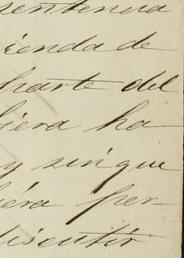 sentencia
ienda de
parte del
biera ha
y sin que
biéra per-
discutir